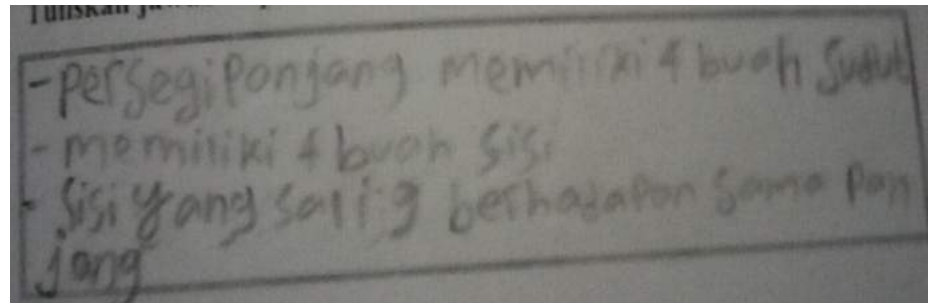 Tuliskan
- persegi Panjang memiliki 4 buah Sudut
- memiliki 4 buah sisi
- Sisi yang salig berhadapan sama pan
jang